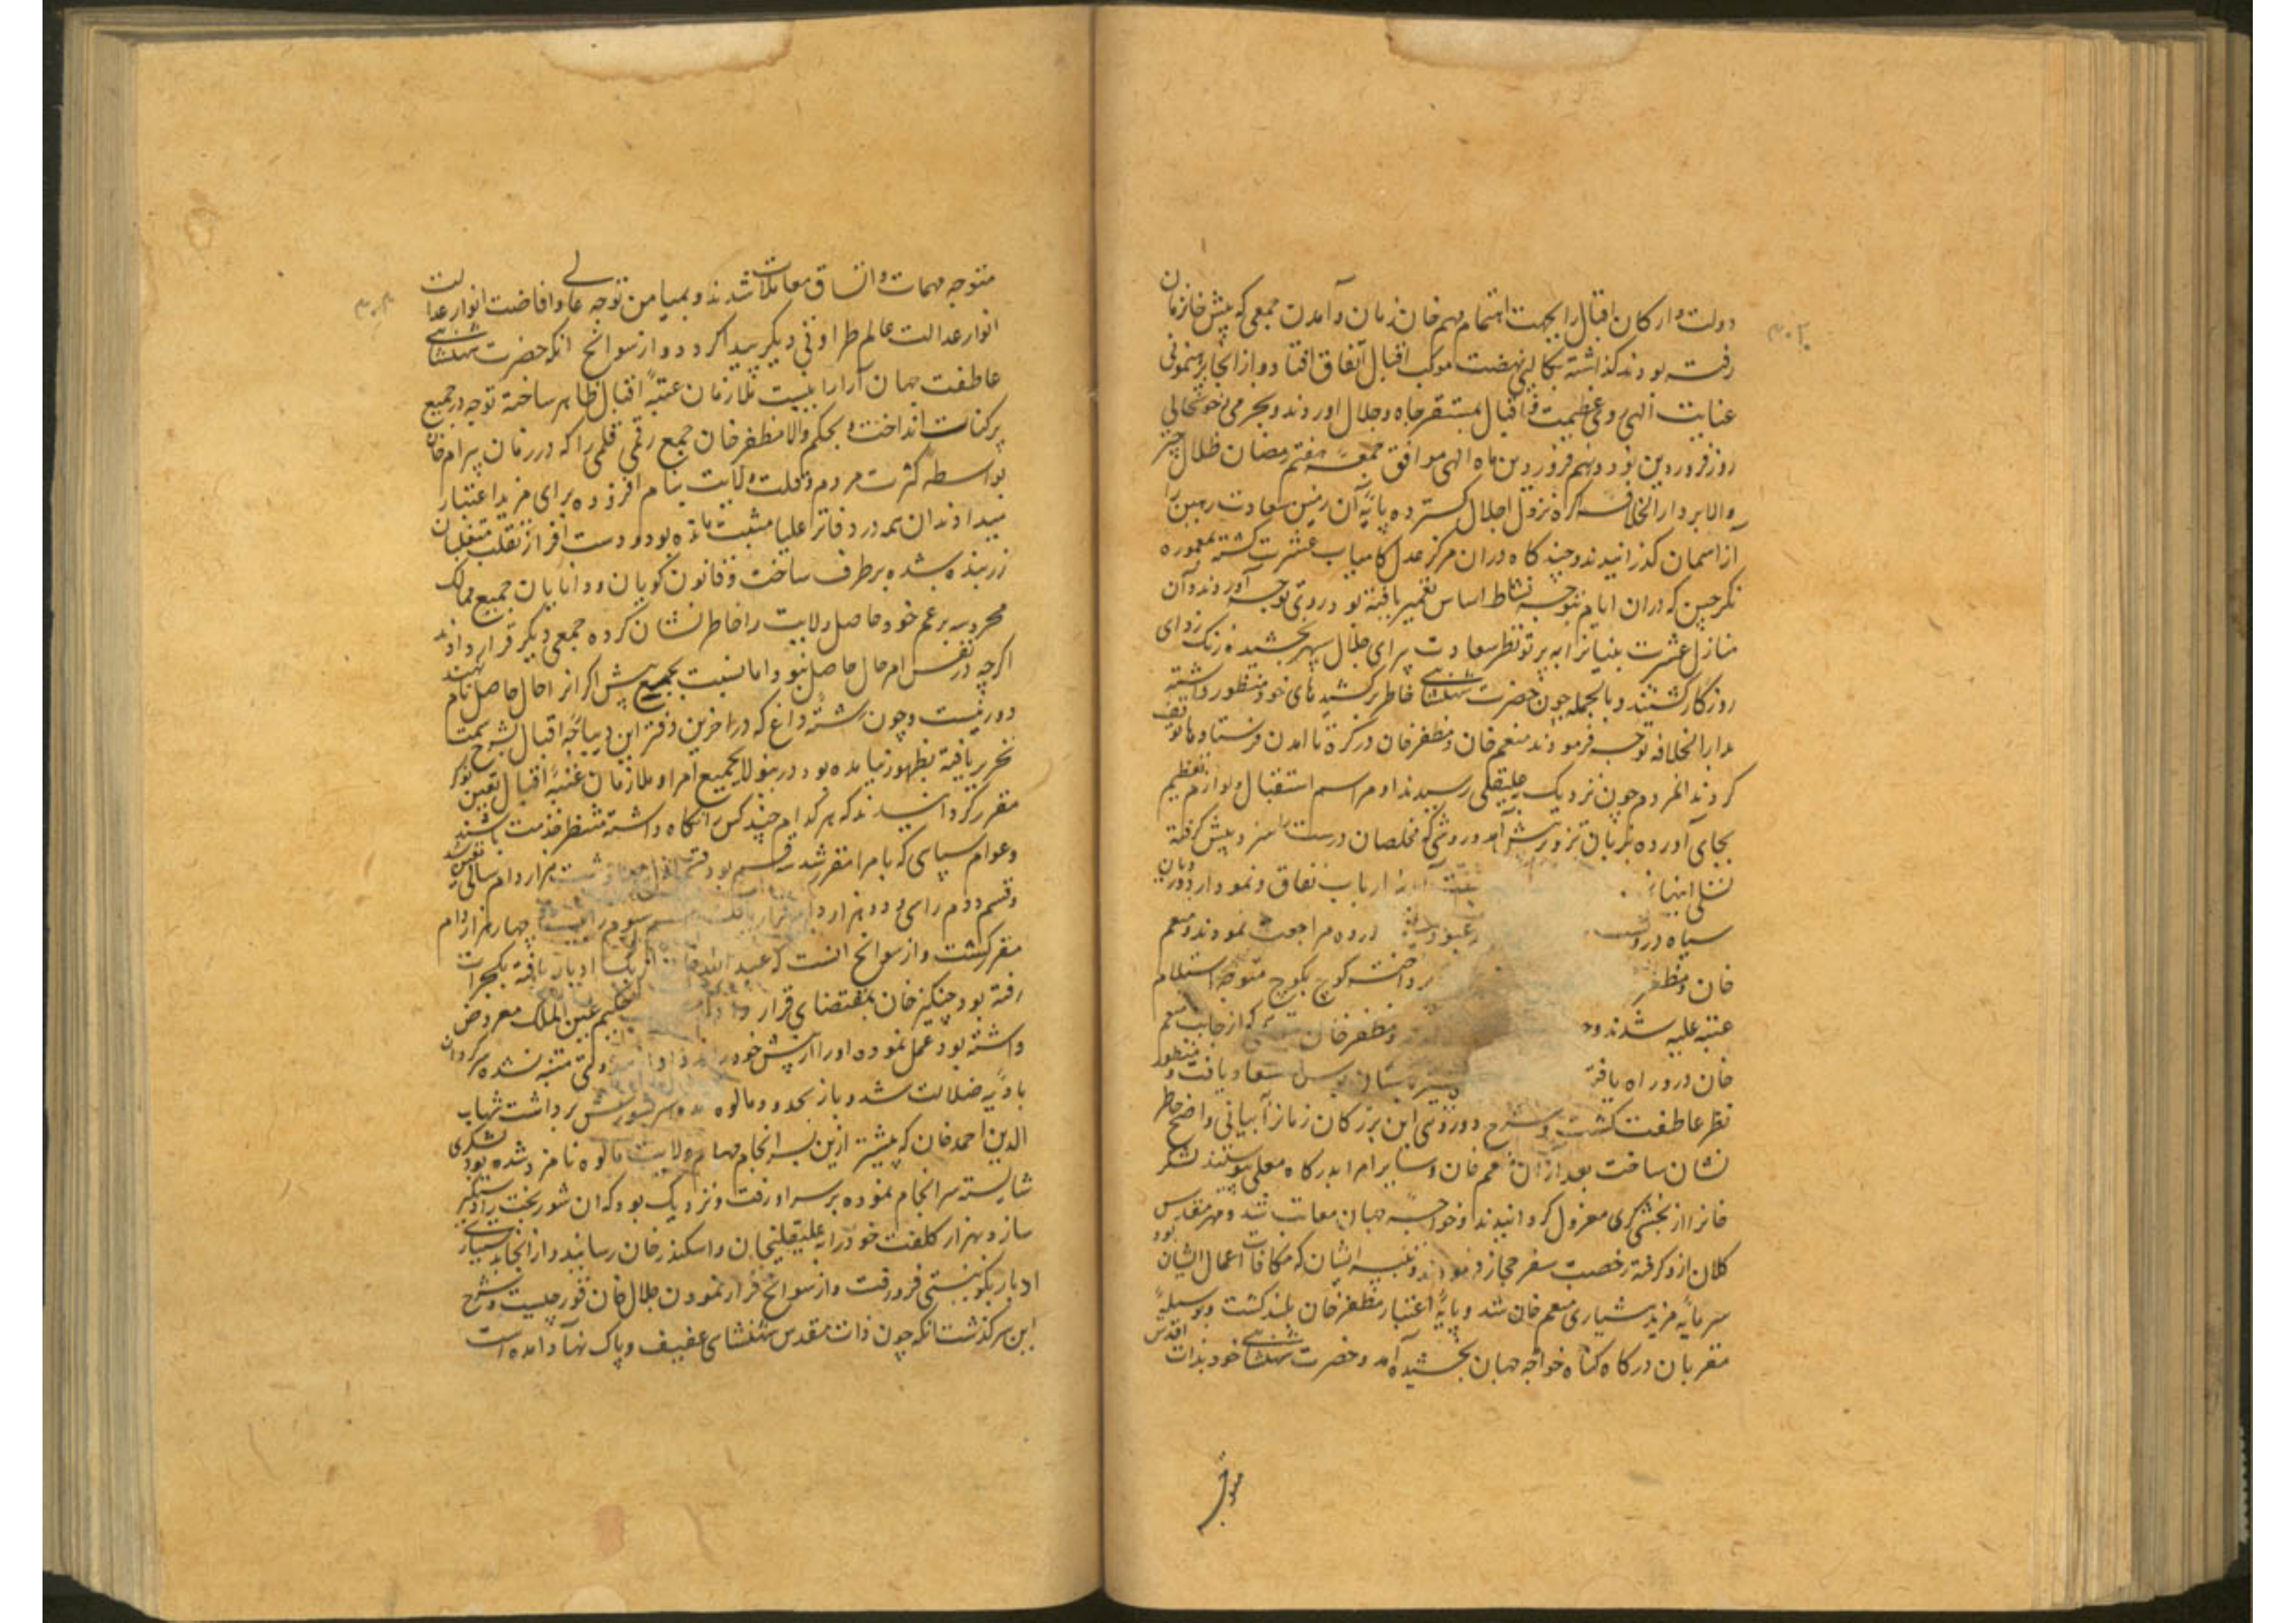 دولت و ارکان اقبال را بجهت اهتمام مهم خان زمان و آمدن جمعی که پیش خانزمان
رفته بودند گذاشته بکالپی نهضت موکب اقبال اتفاق افتاد و از آنجا برهنمونی
عنایت الهی روی عظیمت و اقبال بمستقر جاه و جلال اوردند و بخرمی و خوشحالی
روز فروردین نوزدهم فروردین ماه الهی موافق جمعه هفتم رمضان ظلال چتر
والا بر دارالخلافه اگره نزول اجلال گسترده پایه آن زمین سعادت رهین را
از اسمان گذرانیدند و چند گاه دران مرکز عدل کامیاب عشرت گشته بمعموره
نگرچین که دران ایام بتوجه نشاط اساس تعمیر یافته بود روی توجه آوردند و آن
منازل عشرت بنیانرا به پرتو نظر سعادت پیرای جلال سپهر بخشیده زنک زدای
روزگار گشتند و بالجمله چون حضرت شهنشاهی خاطر برکشیدهای خود منظور داشته
بدارالخلافه توجه فرمودند منعم خان و مظفرخان در کره تا امدن فرستادها توقف
کردند انمردم چون نزدیک علیقلی رسیدند او مراسم استقبال و لوازم تعظیم
بجای آورده بزبان تزویر پیش آمد و روشی که مخلصان درست را سزد پیش گرفته
تسلی اینها ارباب نفاق و نمودار دورویان
سیاه درون مراجعت نمودند و منعم
خان و مظفر برداشته کوچ بکوچ متوجه استلام
عتبه علیه شدند و مظفرخان که از جانب منعم
خان در راه یافته سعادت یافت و منظور
نظر عاطفت گشت و شرح دورویی این بزرگان زمانرا بیانی واضح خاطر
نشان ساخت بعد ازان منعم خان و سایر امرا بدرگاه معلی پیوستند لشکر
خانرا از بخشی گری معزول گردانیدند و خواجه جهان معاتب شد و مهر مقدس
کلان ازو گرفته رخصت سفر حجاز فرمودند و تنبیه ایشان که مکافات اعمال ایشان بود
سرمایه مزید هشیاری منعم خان شد و پایه اعتبار مظفرخان بلند گشت و بوسیله
مقربان درگاه گناه خواجه جهان بخشیده آمد و حضرت شهنشاهی خود بذات اقدس
متوجه
متوجه مهمات و اتساق معاملات شدند و بمیامن توجه عالی و افاضت انوار عدالت
انوار عدالت عالم طراوتی دیگر پیدا کرد و از سوانح انکه حضرت شهنشاهی
عاطفت جهان آرا را بنسبت ملازمان عتبه اقبال ظاهر ساخته توجه در جمیع
پرکنات انداخت و بحکم والا مظفرخان جمع رقمی قلمی را که در زمان بیرام خان
بواسطه کثرت مردم و قلت ولایت بنام افزوده برای مزید اعتبار
میدادند ان همه در دفاتر علیا مثبت مانده بود و دست افزار تقلب متغلبان
زربنده شده برطرف ساخت و قانون گویان و دانایان جمیع ممالک
محروسه برعم خود حاصل ولایت را خاطر نشان کرده جمعی دیگر قرار دادند
اگرچه در نفس امر حال حاصل نبود اما نسبت بجمع پیش اگر انرا حال حاصل نام نهند
دور نیست و چون رشته داغ که در اخرین دفتر این دیباچه اقبال بشرح سمت
تحریر یافته بظهور نیامده بود درینولا بجمیع امرا و ملازمان عتبه اقبال تعین نوکر
مقرر گردانیدند که هر کدام چند کس را نگاه داشته منتظر خدمت باشند
وعوام سپاهی که با امرا مقرر شد سه قسم بود قسم اول چهل و هشت هزار دام سالی تعین شد
وقسم دوم را سی و دو هزار دام قسم سوم را بیست و چهار هزار دام
مقرر گشت و از سوانح انست که عبدالله خان اوزبک ادبار یافته بکجرات
رفته بود چنگیز خان بمقتضای قرار داد که حکیم عین الملک معروض
داشته بود عمل نموده اورا از پیش خود راند و وقتی متنبه نشده سرگردان
بادیه ضلالت شد و باز بحدود مالوه سر شورش برداشت شهاب
الدین احمد خان که پیشتر ازین بسرانجام مهام ولایت مالوه نامزد شده بود لشکری
شایسته سرانجام نموده بر سر او رفت و نزدیک بود که ان شور بخت را دستگیر
سازد بهزار کلفت خود را به علیقلیخان و اسکندرخان رسانید و از آنجا به بسیاری
ادبار بگو نیستی فرو رفت و از سوانح فرار نمودن جلال خان قورچیست و شرح
این سرگذشت انکه چون ذات مقدس شهنشاهی عفیف و پاک نهاد امده است